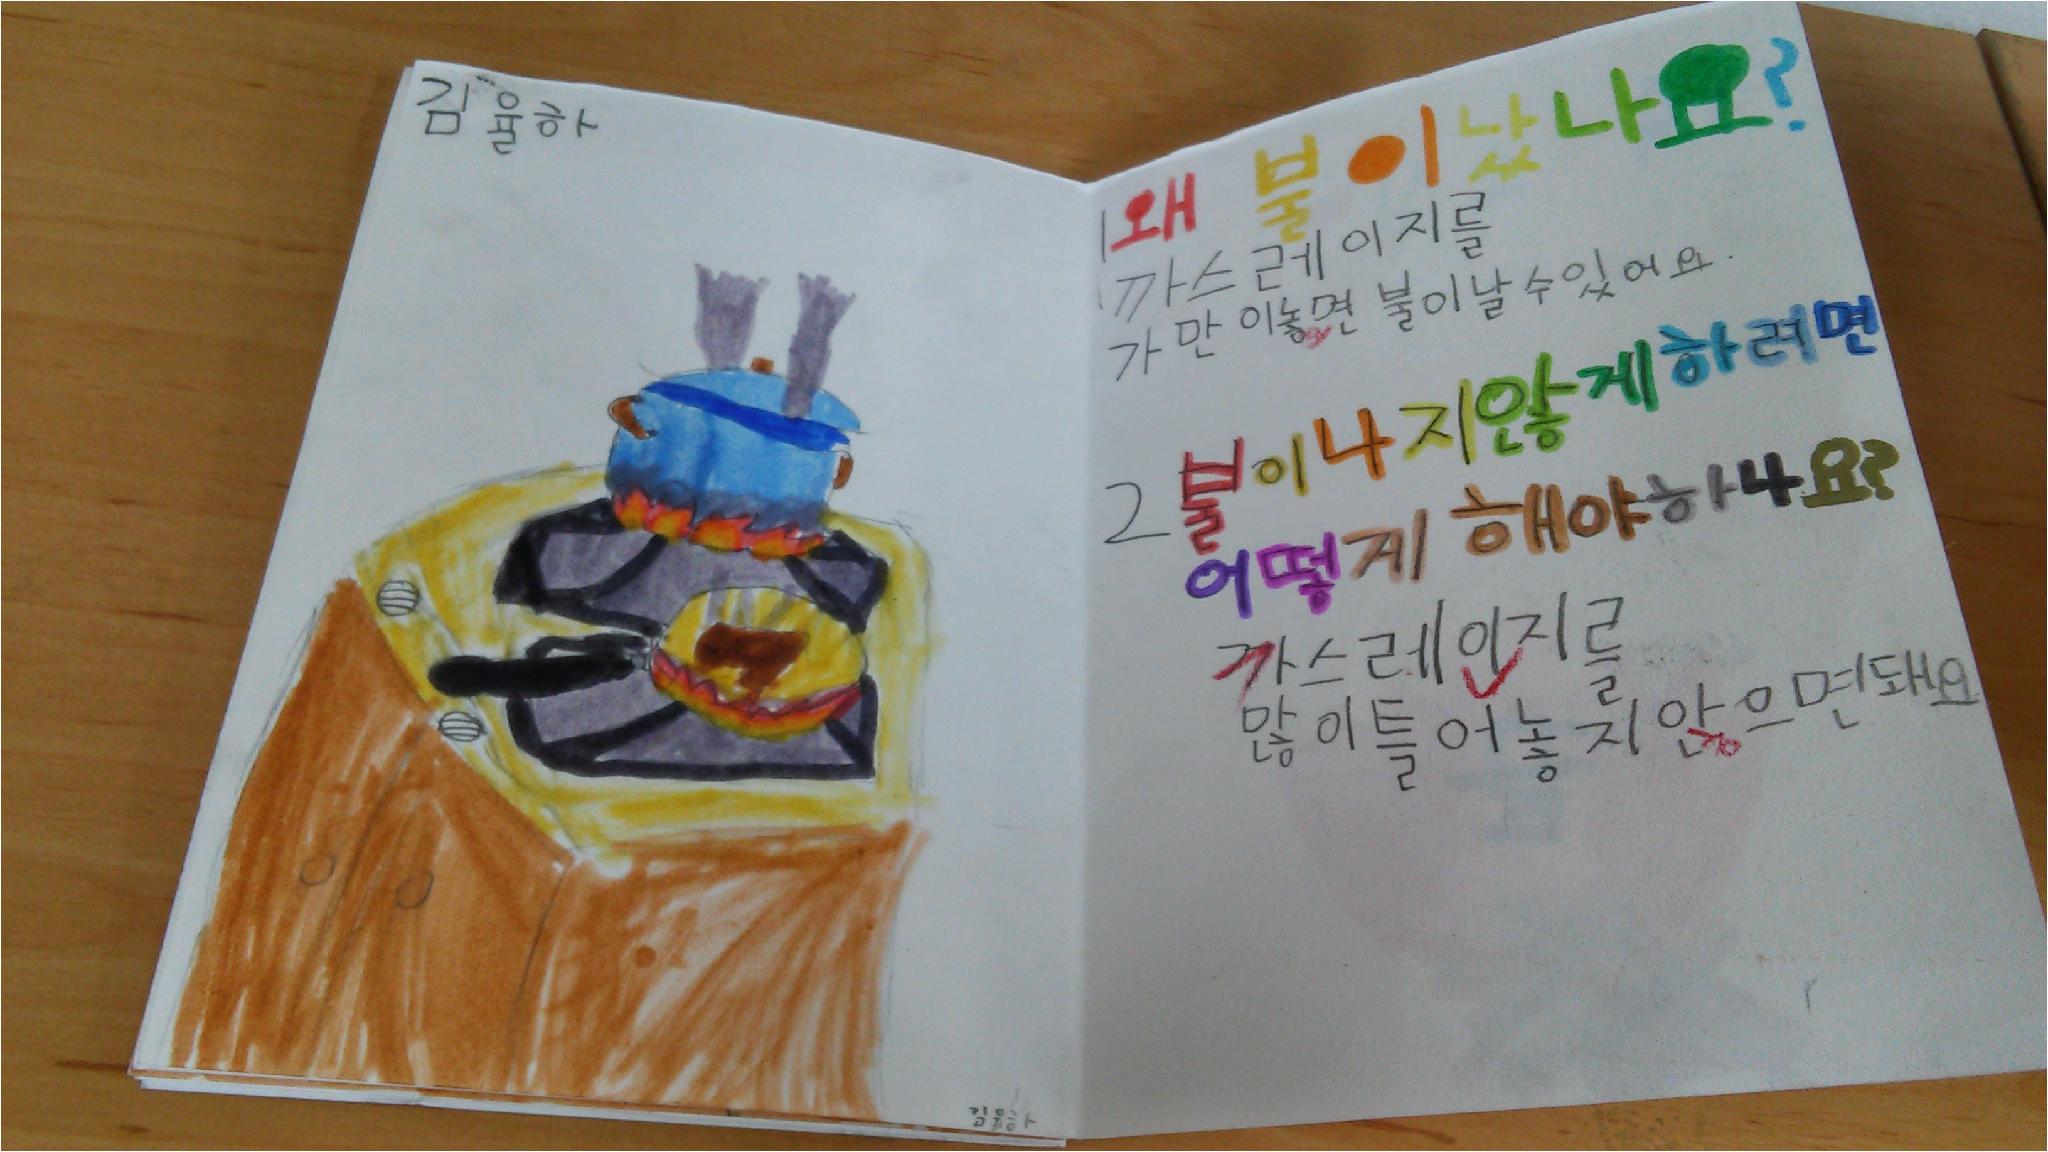 김율하
1 왜 불이났나요?
까스레이지를
가만이놓면 불이날수있어요.
2 불이나지않게하려면
어떻게 해야하나요?
까스레인지를
많이틀어놓지않으면돼요
김율하